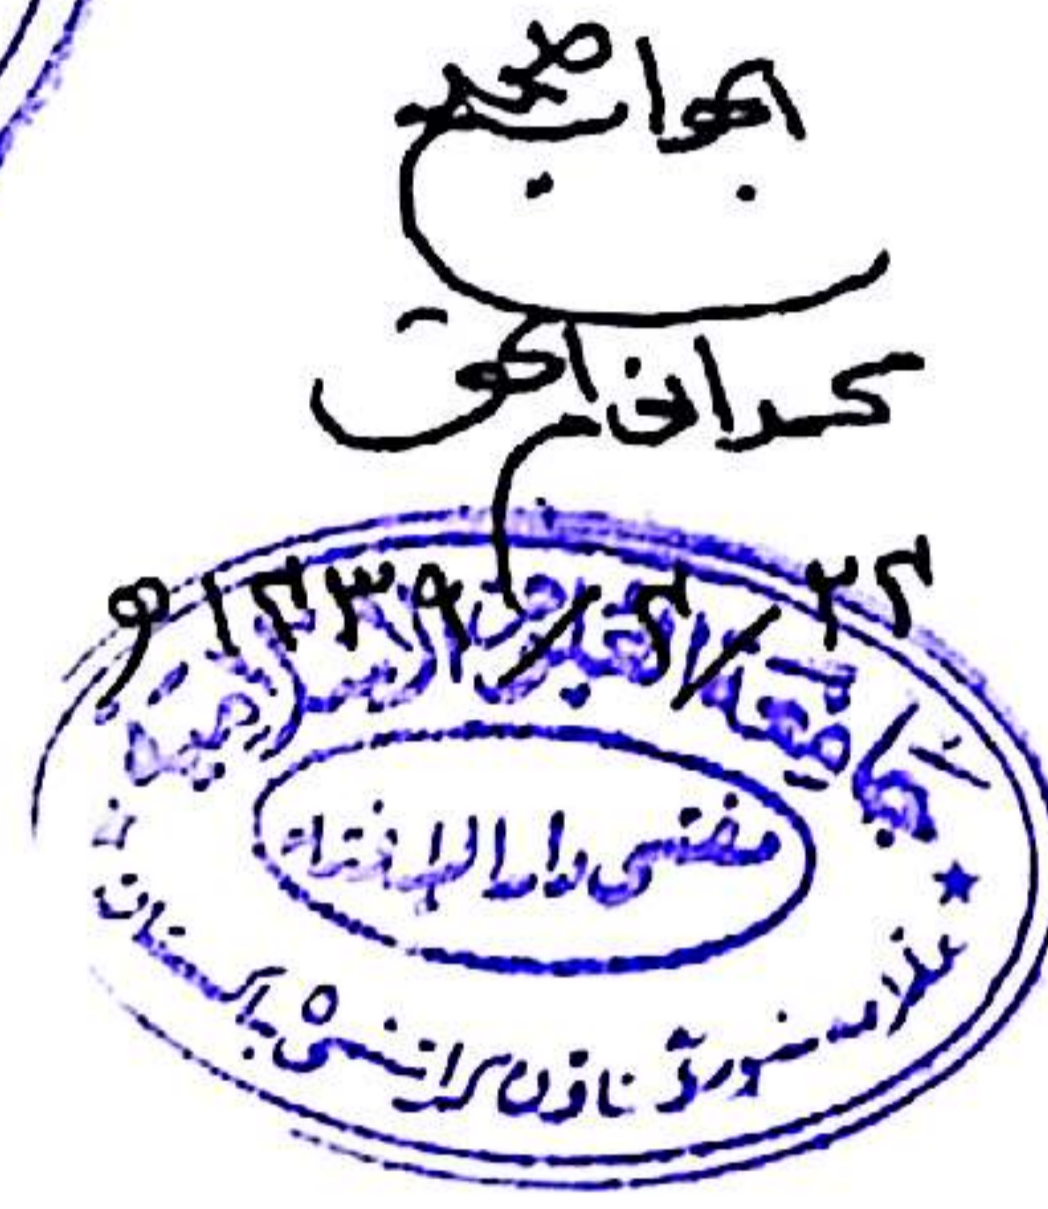 الجواب صحیح
محمد انعام الحق
۲۴/۴/۱۴۳۹ھ
جامعة العلوم الاسلامیة
مفتی دار الافتاء
علامہ بنوری ٹاؤن کراتشی ۵ باکستان